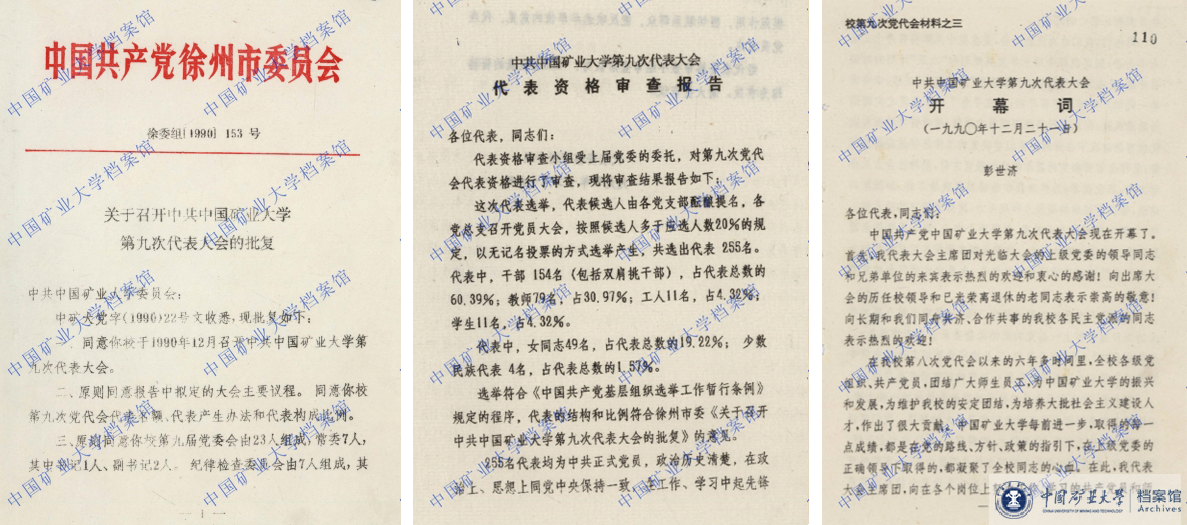 中国共产党徐州市委员会
徐委组[1990] 153 号
关于召开中共中国矿业大学
第九次代表大会的批复
中共中国矿业大学委员会:
中矿大党字(1990)22号文收悉,现批复如下:
同意你校于1990年12月召开中共中国矿业大学第
九次代表大会。
二、原则同意报告中拟定的大会主要议程。 同意你校
第九次党代会代表名额、代表产生办法和代表构成比例。
三、原则同意你校第九届党委会由23人组成,常委7人,
其中书记1人、副书记2人。 纪律检查委员会由7人组成,其
— 1 —
中共中国矿业大学第九次代表大会
代表资格审查报告
各位代表,同志们:
代表资格审查小组受上届党委的委托,对第九次党代
会代表资格进行了审查,现将审查结果报告如下:
这次代表选举,代表候选人由各党支部酝酿提名,各
党总支召开党员大会,按照候选人多于应选人数20%的规
定,以无记名投票的方式选举产生,共选出代表 255名。
代表中,干部 154名(包括双肩挑干部),占代表总数的
60.39%;教师79名,占30.97%;工人11名,占4.32%;
学生11名,占4.32%。
代表中,女同志49名,占代表总数的19.22%; 少数
民族代表 4名,占代表总数的1.57%。
选举符合《中国共产党基层组织选举工作暂行条例》
规定的程序,代表的结构和比例符合徐州市委《关于召开
中共中国矿业大学第九次代表大会的批复》的意见。
255名代表均为中共正式党员,政治历史清楚,在政
治上、思想上同党中央保持一致,在工作、学习中起先锋
校第九次党代会材料之三
110
中共中国矿业大学第九次代表大会
开幕词
(一九九〇年十二月二十一日)
彭世济
各位代表,同志们:
中国共产党中国矿业大学第九次代表大会现在开幕了。
首先,我代表大会主席团对光临大会的上级党委的领导同志
和兄弟单位的来宾表示热烈的欢迎和衷心的感谢!向出席大
会的历任校领导和已光荣离退休的老同志表示崇高的敬意!
向长期和我们同舟共济、合作共事的我校各民主党派的同志
表示热烈的欢迎!
在我校第八次党代会以来的六年多时间里,全校各级党
组织、共产党员,团结广大师生员工,为中国矿业大学的振兴
和发展,为维护我校的安定团结,为培养大批社会主义建设人
才,作出了很大贡献。中国矿业大学每前进一步,取得的每一
点成绩,都是在党的路线、方针、政策的指引下,在上级党委的
正确领导下取得的,都凝聚了全校同志的心血。在此,我代表
大会主席团,向在各个岗位上
中国矿业大学 档案馆
CHINA UNIVERSITY OF MINING AND TECHNOLOGY Archives
中国矿业大学档案馆